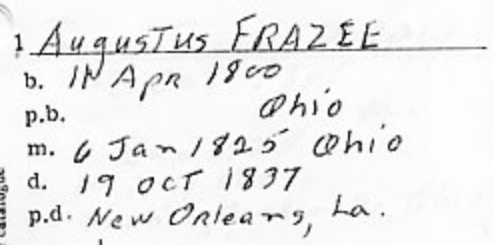 1 Augustus FRAZEE
b. IN Apr 1800
p.b. Ohio
m. 6 Jan 1825 Ohio
d. 19 OCT 1837
p.d. New Orleans, La.
catalogue